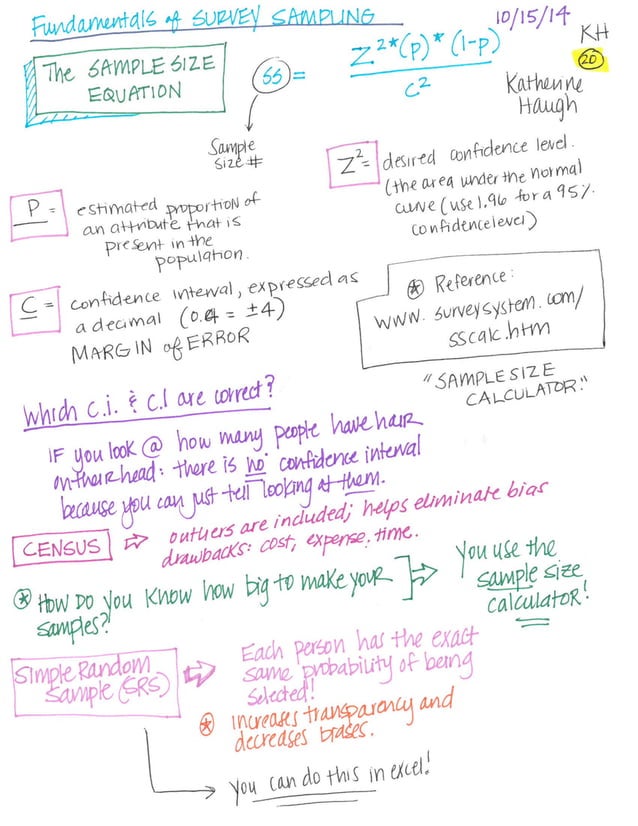 Fundamentals of SURVEY SAMPLING
10/15/14
KH
20
Katherine
Haugh
The SAMPLE SIZE
EQUATION
SS = Z²*(p)*(1-p)
c²
Sample
Size #
Z²= desired confidence level.
(the area under the normal
curve (use 1.96 for a 95%
confidence level)
P = estimated proportion of
an attribute that is
present in the
population.
C = confidence interval, expressed as
a decimal (0.04 = ±4)
MARGIN of ERROR
Reference:
www.surveysystem.com/
sscalc.htm
"SAMPLE SIZE
CALCULATOR."
Which c.i. & c.l are correct?
IF you look @ how many people have hair
on their head: there is no confidence interval
because you can just tell looking at them.
CENSUS ⇨ outliers are included; helps eliminate bias
drawbacks: cost, expense. time.
How Do you Know how big to make your
samples?
You use the
sample size
calculator!
Simple Random
Sample (SRS)
Each person has the exact
same probability of being
selected!
increases transparency and
decreases biases.
you can do this in excel!